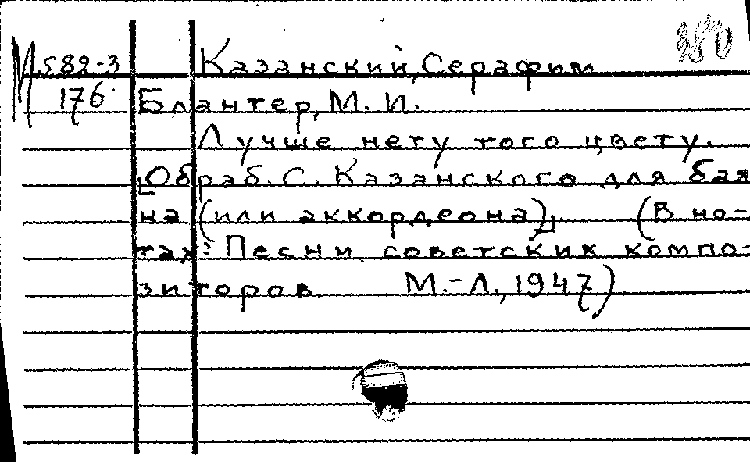 М 582-3 Казанский, Серафим
176 Блантер, М. И.
Лучше нету того цвету.
[Обраб. С. Казанского для бая
на (или аккордеона)] (В но-
тах: Песни советских компо-
зиторов М.-Л., 1947)